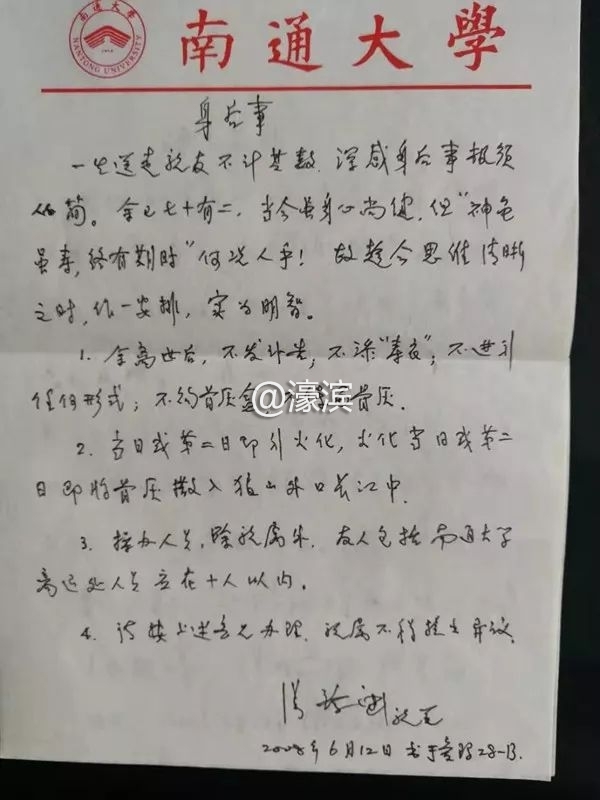 南通大學
NANTONG UNIVERSITY
南通大學
身后事
一生送走亲友不计其数, 深感身后事极须
从简。余已七十有二, 当今虽身心尚健, 但"神龟
虽寿, 终有期时"何况人乎! 故趁今思维清晰
之时, 作一安排, 实为明智。
1. 余离世后, 不发讣告; 不添"寿衣"; 不进行
任何形式; 不购骨灰盒 骨灰.
@濠滨
2. 当日或第二日即行火化, 火化当日或第二
日即将骨灰撒入狼山外口长江中.
3. 操办人员, 除亲属外, 友人包括南通大学
离退处人员应在十人以内。
4. 请按上述意见办理, 亲属不得持有异议.
2008年6月12日 书于 28-13.